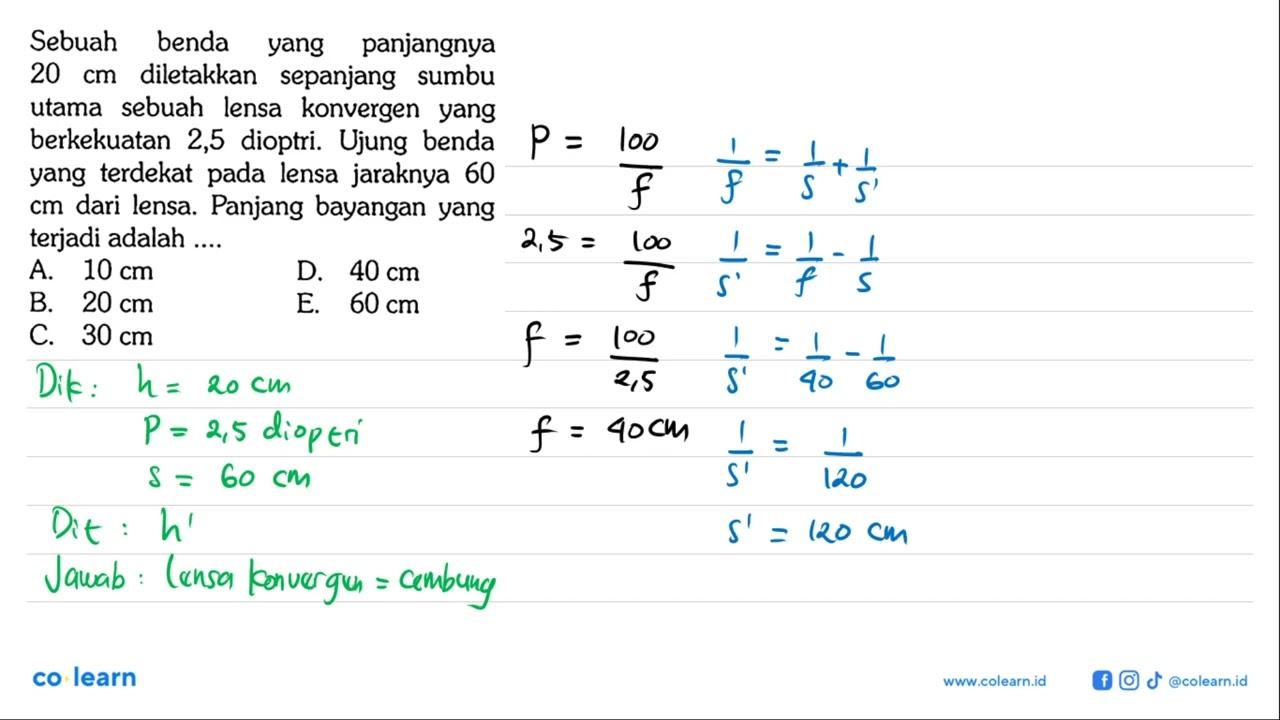 Sebuah benda yang panjangnya
20 cm diletakkan sepanjang sumbu
utama sebuah lensa konvergen yang
berkekuatan 2,5 dioptri. Ujung benda
yang terdekat pada lensa jaraknya 60
cm dari lensa. Panjang bayangan yang
terjadi adalah ....
A. 10 cm D. 40 cm
B. 20 cm E. 60 cm
C. 30 cm
Dik: h = 20 cm
P = 2,5 dioptri
s = 60 cm
Dit : h'
Jawab : lensa konvergen = cembung
P = 100/f
2,5 = 100/f
f = 100/2,5
f = 40 cm
1/f = 1/s + 1/s'
1/s' = 1/f - 1/s
1/s' = 1/40 - 1/60
1/s' = 1/120
s' = 120 cm
co learn
www.colearn.id
@colearn.id